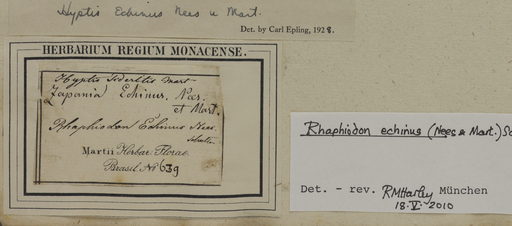 Hyptis Echinus Nees u Mart.
Det. by Carl Epling, 1928.
HERBARIUM REGIUM MONACENSE.
Hyptis Mart
Zapania Echinus. Nees.
et Mart.
Rhaphiodon Echinus Nees.
Martii Herbar. Florae
Brasil. No 639
Rhaphiodon echinus (Nees & Mart.) Sc
Det. - rev. RMHarley München
18.V.2010